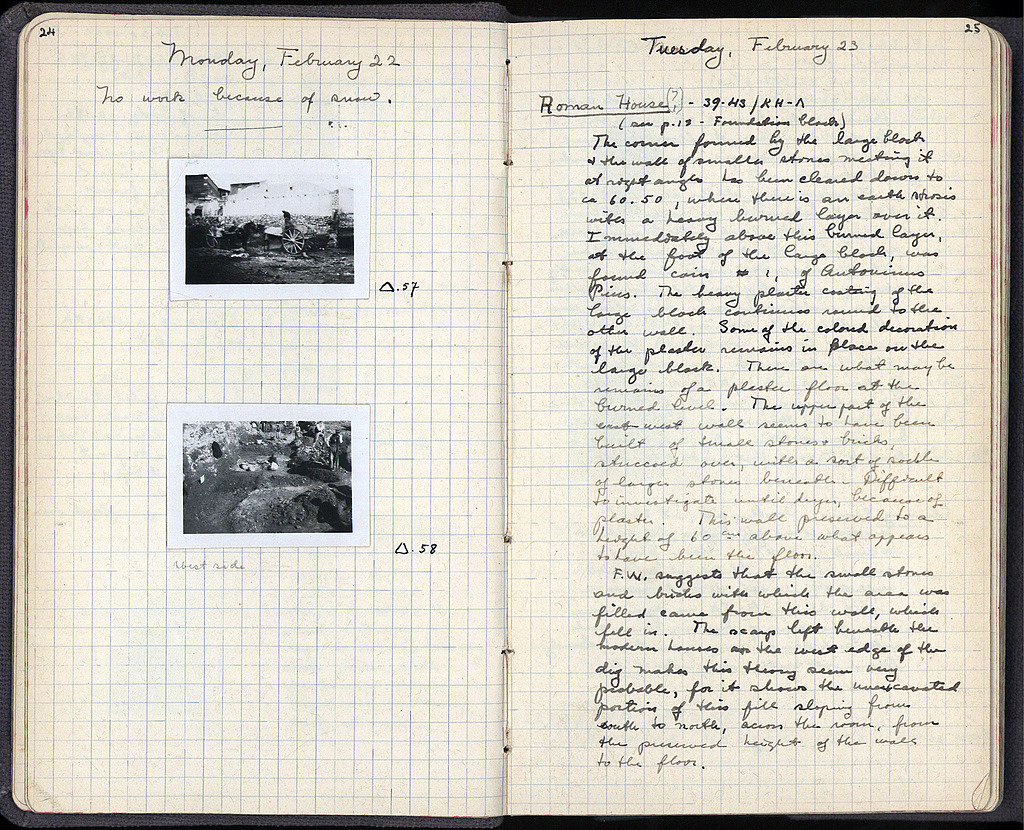 24
Monday, February 22
No work because of snow.
Δ.57
Δ.58
West side
25
Tuesday, February 23
Roman House (?) - 39-43/ΚΗ-Λ
(see p.13 - Foundation block)
The corner formed by the large block
+ the wall of smaller stones meeting it
at right angles has been cleared down to
ca 60.50, where there is an earth strosis
with a heavy burned layer over it.
Immediately above this burned layer,
at the foot of the large block, was
found coin #1, of Antoninus
Pius. The heavy plaster coating of the
large block continues round to the
other wall. Some of the colored decoration
of the plaster remains in place on the
large block. There are what may be
remains of a plaster floor at the
burned level. The upper part of the
east-west wall seems to have been
built of small stones + bricks,
stuccoed over, with a sort of socle
of larger stones beneath. Difficult
to investigate until dryer, because of
plaster. This wall preserved to a
height of 60 cm above what appears
to have been the floor.
F.W. suggests that the small stones
and bricks with which the area was
filled came from this wall, which
fell in. The scarp left beneath the
modern houses on the west edge of the
dig makes this theory seem very
probable, for it shows the unexcavated
portion of this fill sloping from
south to north, across the room, from
the preserved height of the wall
to the floor.